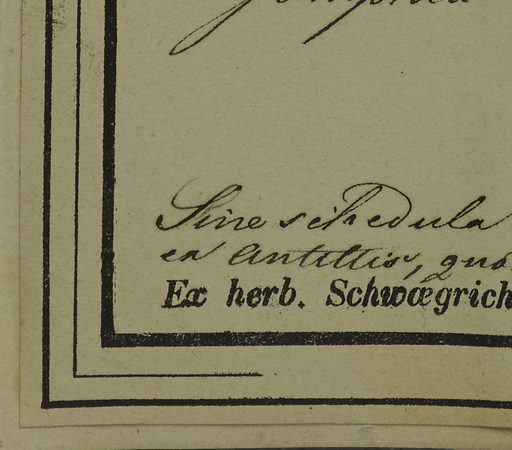 Sine schedula
ea Antillis, quo
Ex herb. Schwægrich